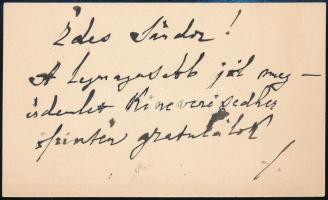 Édes Sándor!
A legmagasabb jól meg–
érdemlet Kinevezésedhez
szintén gratulálok